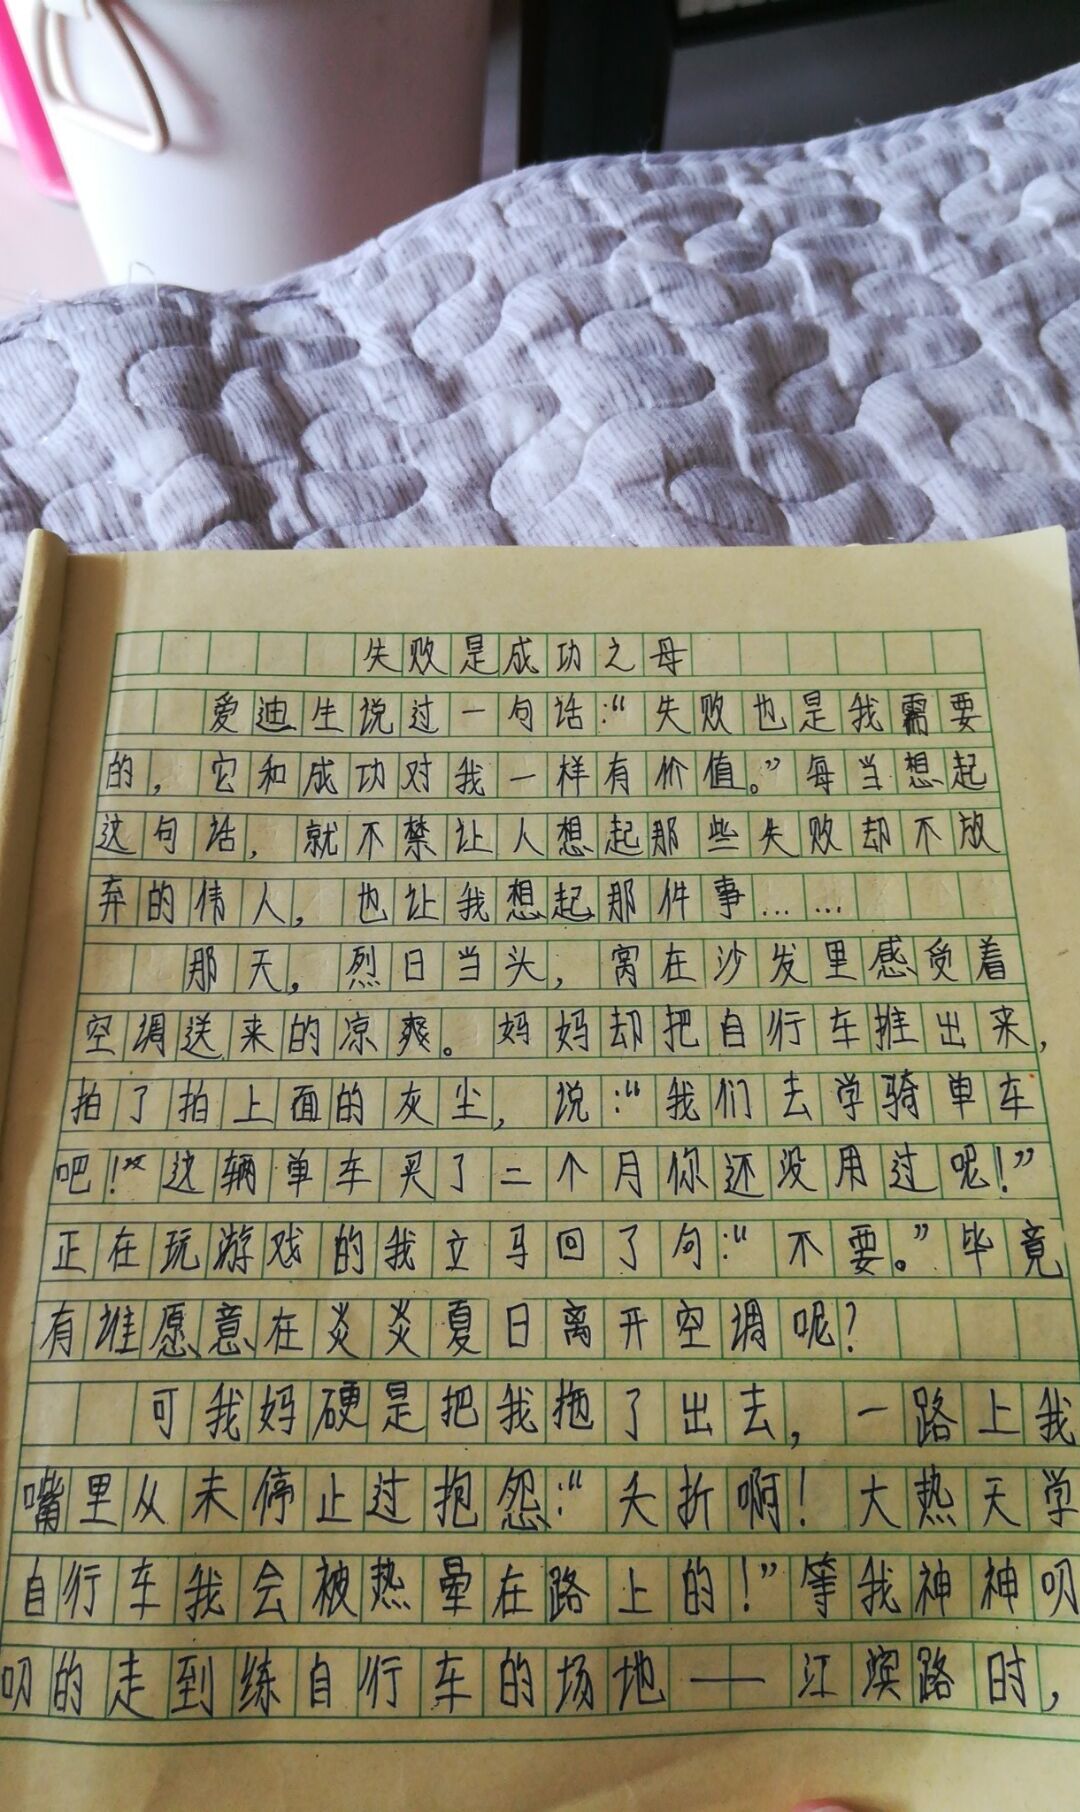 失败是成功之母
爱迪生说过一句话:“失败也是我需要
的，它和成功对我一样有价值。”每当想起
这句话，就不禁让人想起那些失败却不放
弃的伟人，也让我想起那件事……
那天，烈日当头，窝在沙发里感受着
空调送来的凉爽。妈妈却把自行车推出来，
拍了拍上面的灰尘，说:“我们去学骑单车
吧!”“这辆单车买了二个月你还没用过呢!”
正在玩游戏的我立马回了句:“不要。”毕竟
有谁愿意在炎炎夏日离开空调呢?
可我妈硬是把我拖了出去，一路上我
嘴里从未停止过抱怨:“夭折啊!大热天学
自行车我会被热晕在路上的!”等我神神叨
叨的走到练自行车的场地——江滨路时，